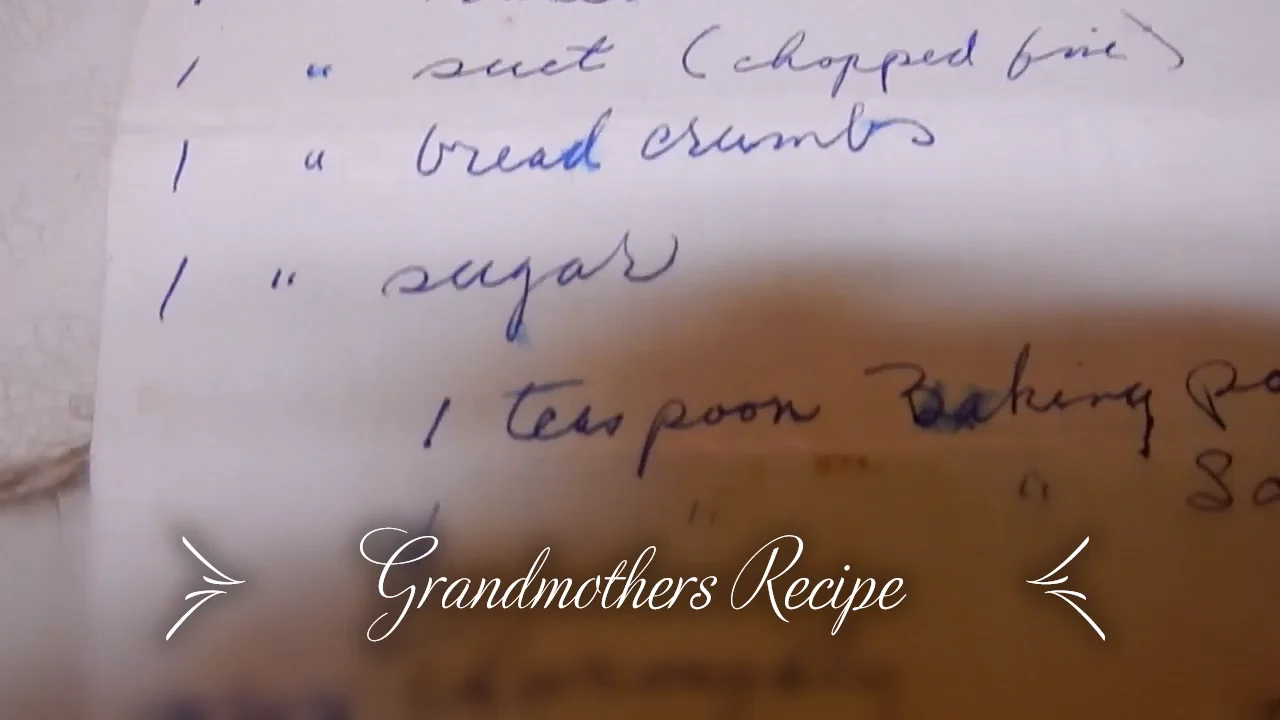 1 " suet (chopped fine)
1 " bread crumbs
1 " sugar
1 teaspoon Baking po
1 " " So
Grandmothers Recipe